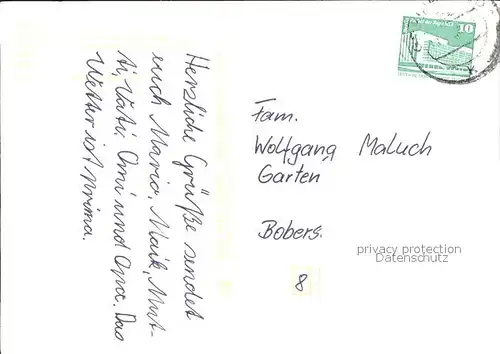 Herzliche Grüße sendet
euch Mario, Maik, Mut-
ti, Vati, Omi und Opa. Das
Wetter ist prima.
10
Fam.
Wolfgang Maluch
Garten
Bobers.
privacy protection
Datenschutz
8